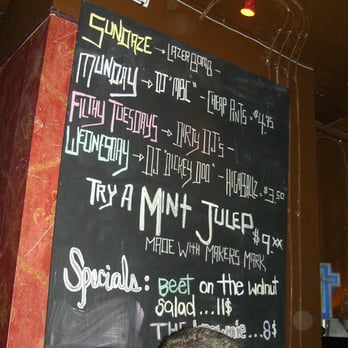 SUNDAZE → LAZER BOMB -
MUNDAY → DJ "MBC" - CHEAP PINTS - $4.75
FILTHY TUESDAYS → DIRTY DJ'S -
WEDNESDAY → DJ DICKEY DOO" - HIGHBALLZ - $3.50
TRY A MINT JULEP
$9.xx
MADE WITH MAKERS MARK
Specials: Beet on the walnut
salad... 11$
THE ... 8$